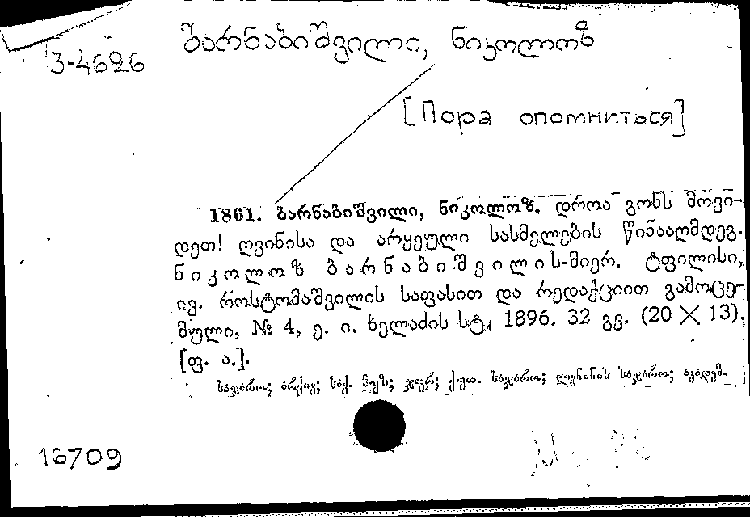 ბარნაბიშვილი, ნიკოლოზ
3-4626
[Пора опомниться]
1861. ბარნაბიშვილი, ნიკოლოზ. დროა გონს მოვი-
დეთ! ღვინისა და არყეული სასმელების წინააღმდეგ.
ნიკოლოზ ბარნაბიშვილის-მიერ. ტფილისი,
ივ. როსტომაშვილის საფასით და რედაქციით გამოცე-
მული, № 4, ე. ი. ხელაძის სტ, 1896. 32 გვ. (20 X 13).
[ფ. ა.].
საჯარო; არქივ; საქ. მუზ;
16709